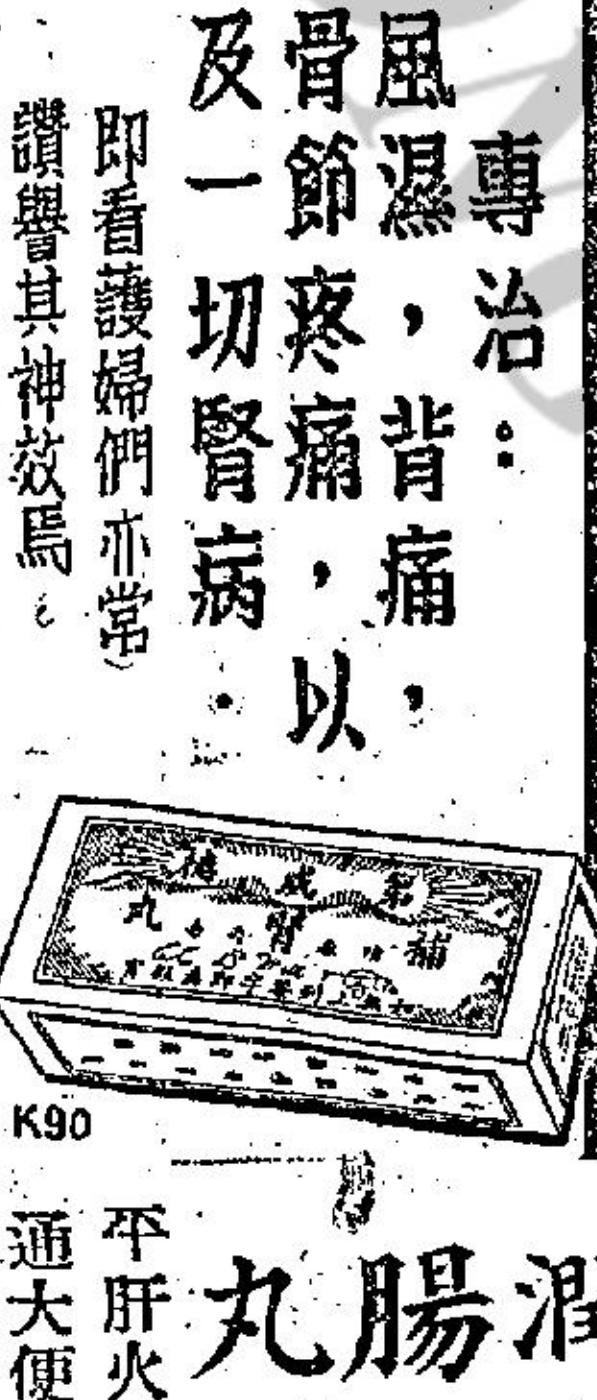 專治：
風濕，背痛，
骨節疼痛，以
及一切腎病．
即看護婦們亦常
讚譽其神效焉。
補腎丸
K90
潤腸丸
平肝火
通大便